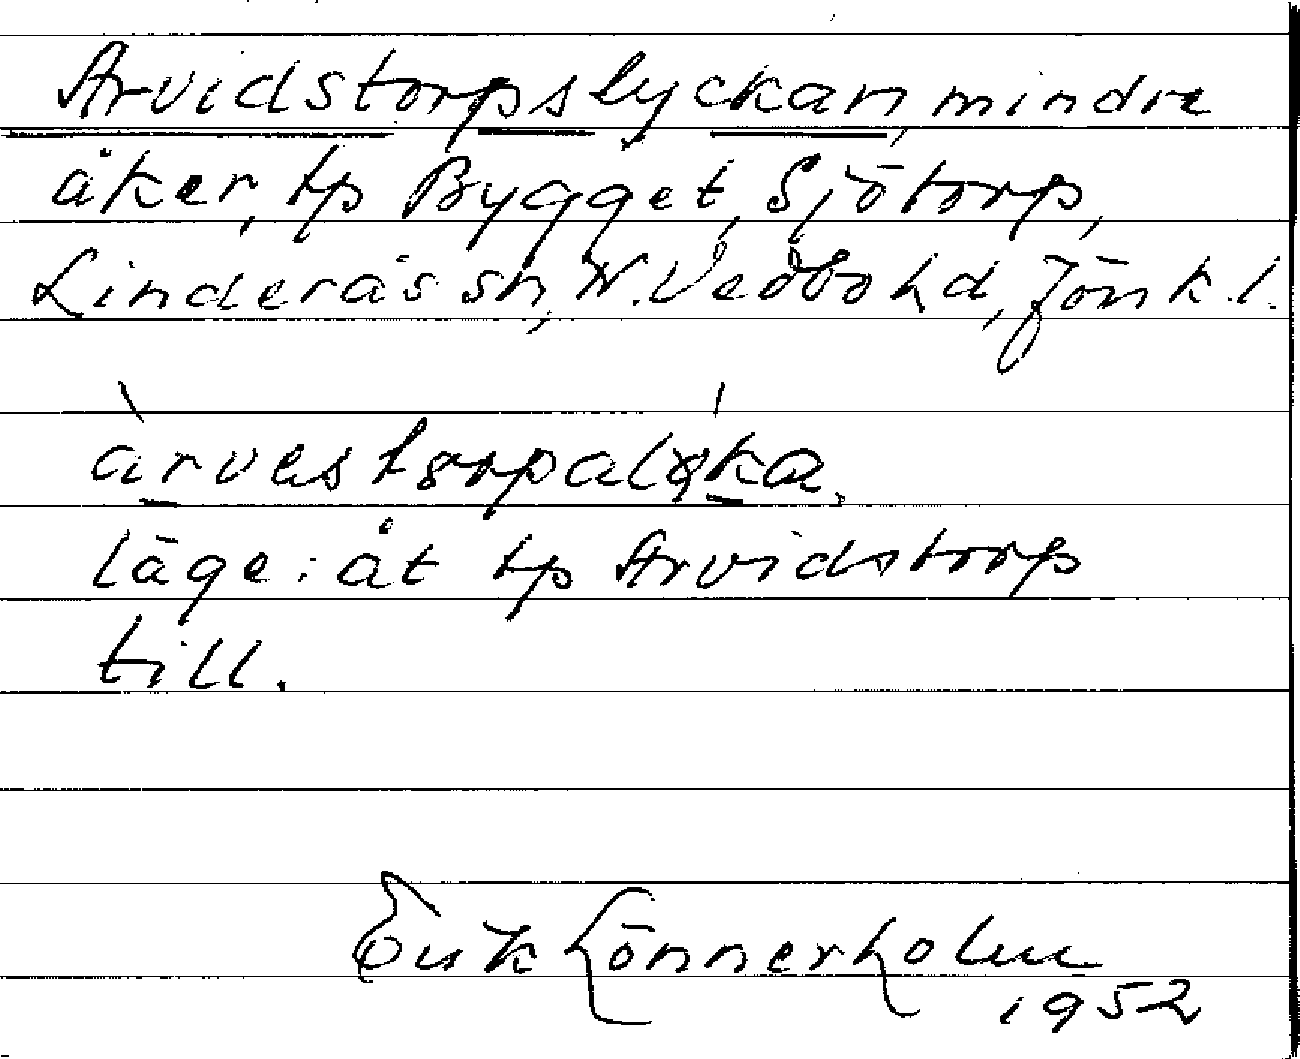 Arvidstorpslyckan, mindre
åker, tp Bygget, Sjötorp,
Linderås sn, N. Vedbo hd, Jönk. l.
àrvestorpalyka.
läge: åt tp Arvidstorp
till.
Erik Lönnerholm
1952